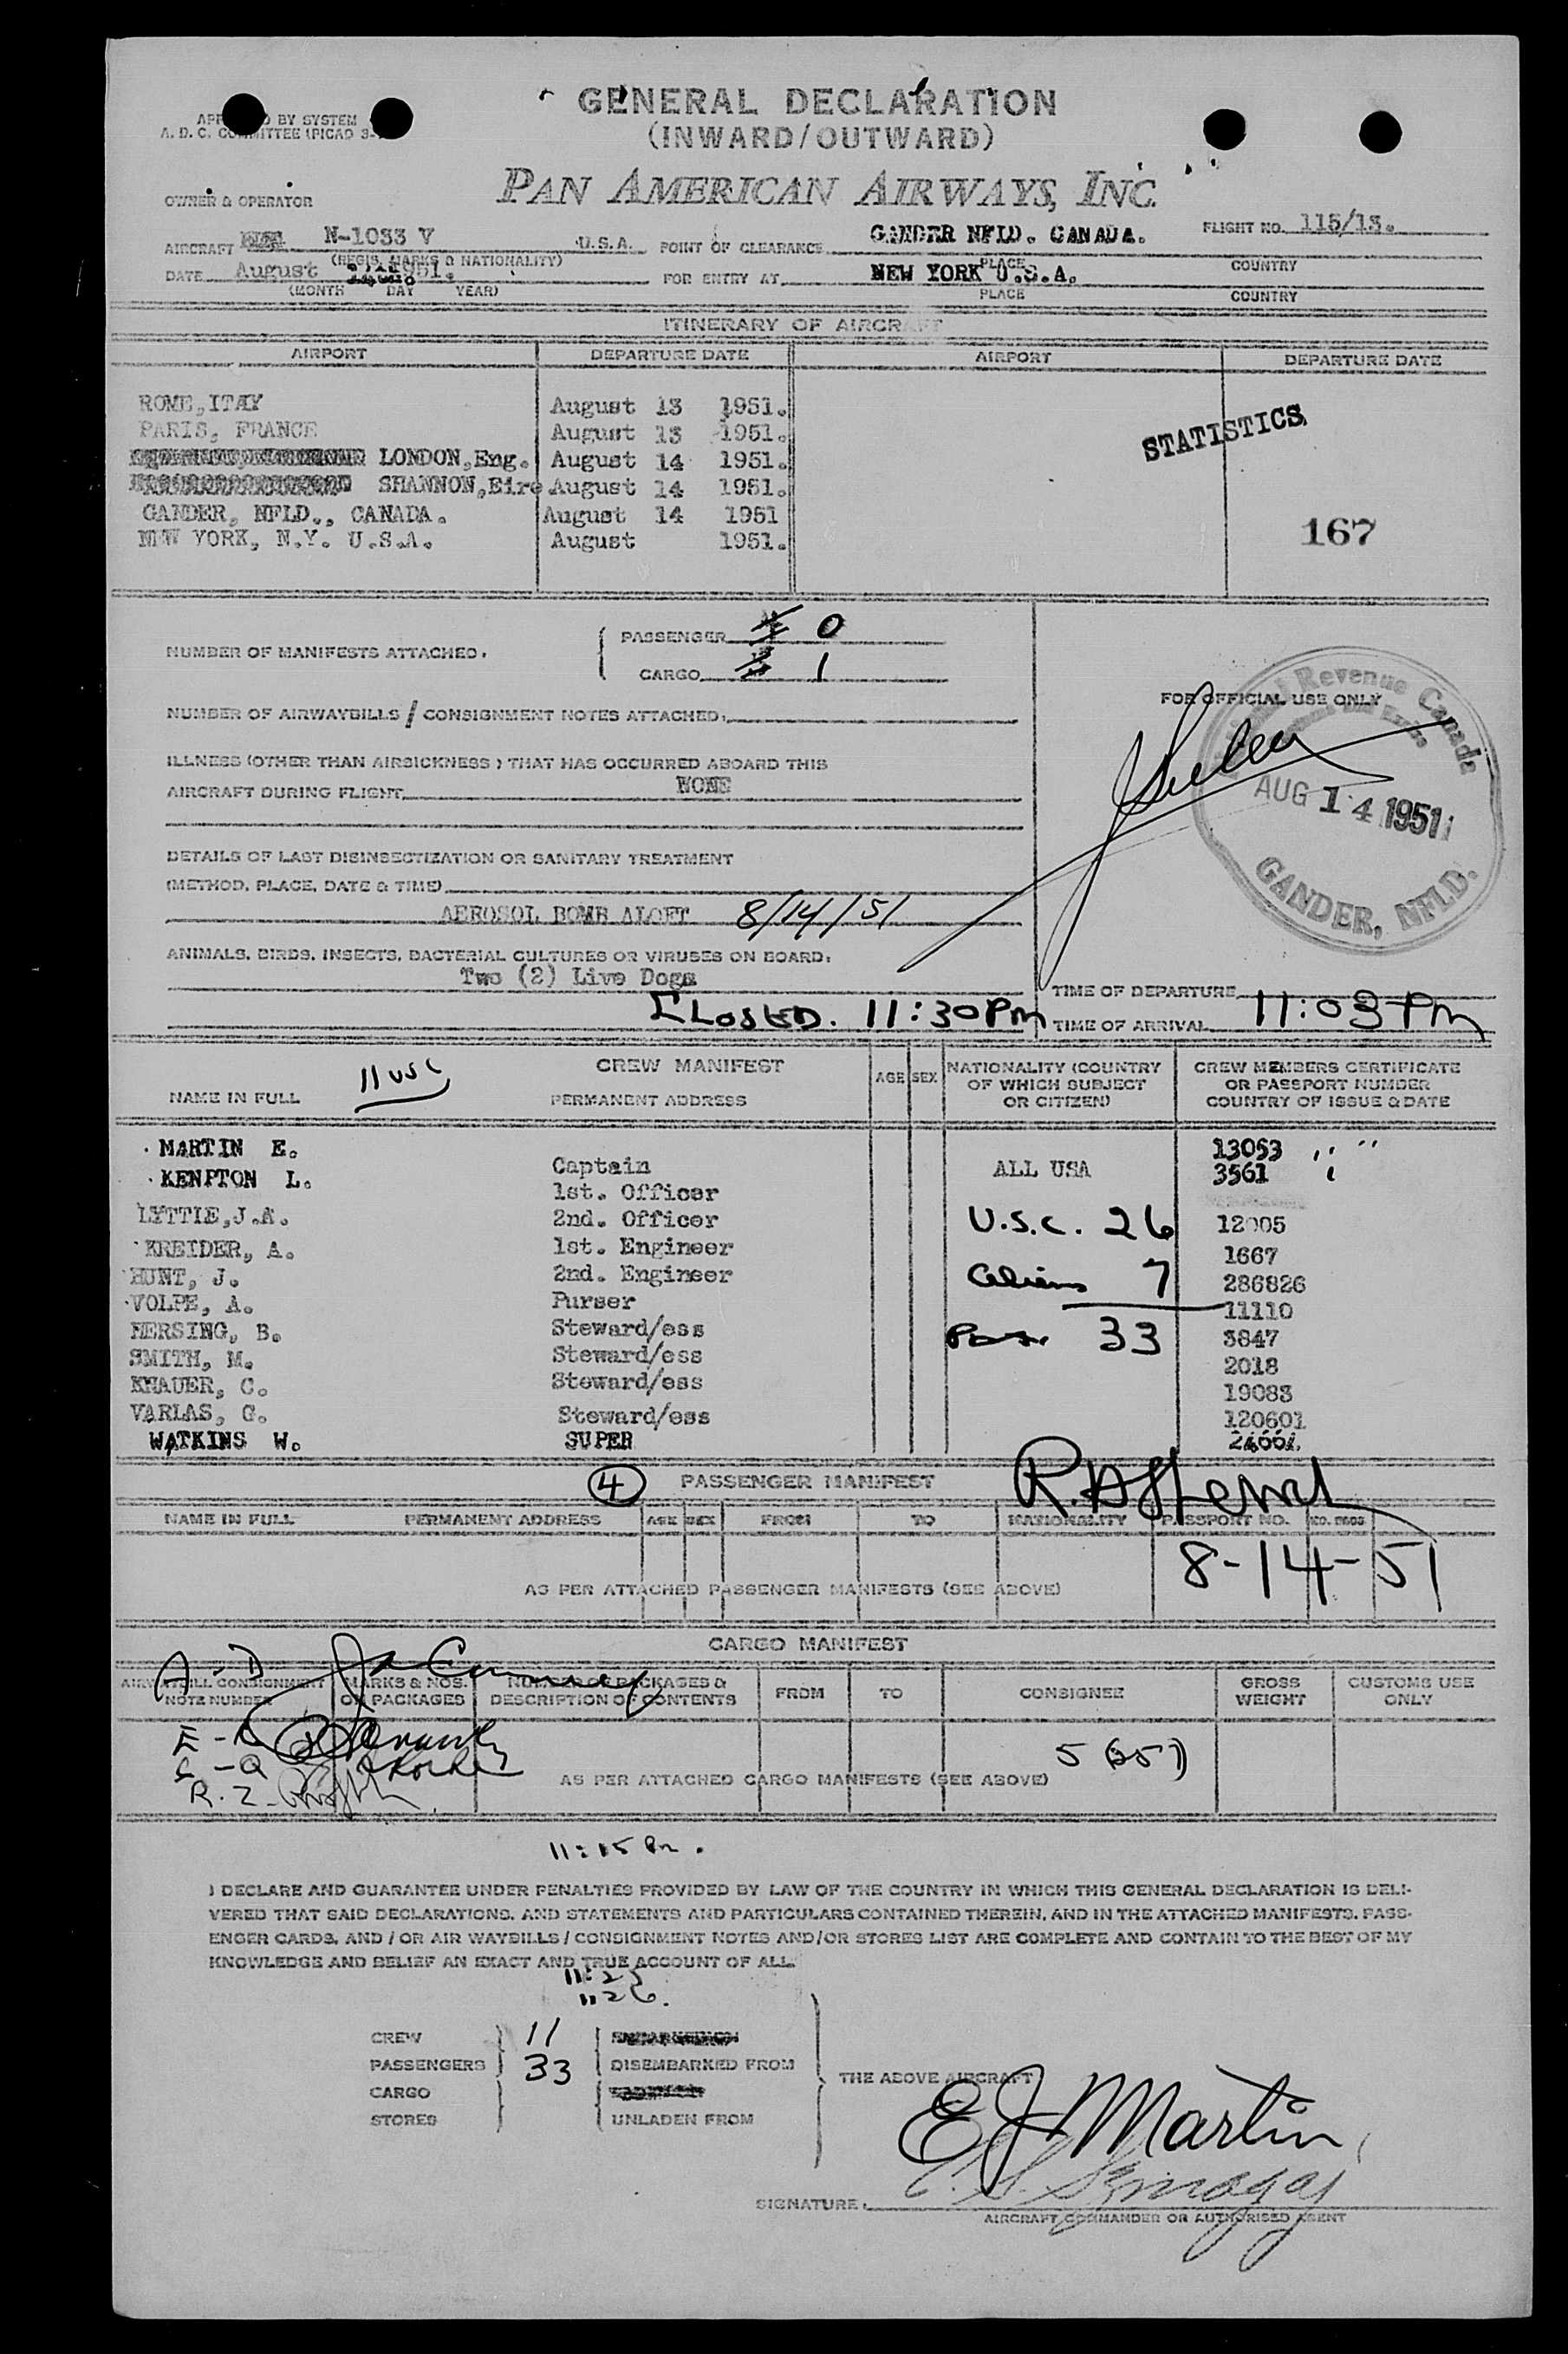 GENERAL DECLARATION
(INWARD/OUTWARD)
BY SYSTEM
A. D. C. COMMITTEE (PICAO
PAN AMERICAN AIRWAYS, INC.
OWNER & OPERATOR
AIRCRAFT N-1033 V U.S.A. POINT OF CLEARANCE GANDER NFLD. CANADA. FLIGHT NO. 115/13.
(REGIS. MARKS & NATIONALITY) PLACE COUNTRY
DATE August 1951. FOR ENTRY AT NEW YORK U.S.A.
(MONTH DAY YEAR) PLACE COUNTRY
ITINERARY OF AIRCRAFT
AIRPORT DEPARTURE DATE AIRPORT DEPARTURE DATE
ROME,ITAY August 13 1951.
PARIS, FRANCE August 13 1951.
STATISTICS
LONDON,Eng. August 14 1951.
SHANNON,Eire August 14 1951.
GANDER, NFLD., CANADA. August 14 1951
167
NEW YORK, N.Y. U.S.A. August 1951.
NUMBER OF MANIFESTS ATTACHED.
PASSENGER 0
CARGO 1
FOR OFFICIAL USE ONLY
Revenue Canada
AUG 14 1951
GANDER, NFLD.
NUMBER OF AIRWAYBILLS / CONSIGNMENT NOTES ATTACHED.
ILLNESS (OTHER THAN AIRSICKNESS) THAT HAS OCCURRED ABOARD THIS
AIRCRAFT DURING FLIGHT NONE
DETAILS OF LAST DISINSECTIZATION OR SANITARY TREATMENT
(METHOD, PLACE, DATE & TIME)
AEROSOL BOMB ALOFT 8/14/51
ANIMALS, BIRDS, INSECTS, BACTERIAL CULTURES OR VIRUSES ON BOARD.
Two (2) Live Dogs
TIME OF DEPARTURE
CLOSED. 11:30PM
TIME OF ARRIVAL 11:03 PM
11 USC
CREW MANIFEST
NAME IN FULL PERMANENT ADDRESS AGE SEX
NATIONALITY (COUNTRY OF WHICH SUBJECT OR CITIZEN)
CREW MEMBERS CERTIFICATE OR PASSPORT NUMBER COUNTRY OF ISSUE & DATE
MARTIN E. Captain 13053
KENPTON L. 1st. Officer ALL USA 3561
LYTTIE,J.A. 2nd. Officer U.S.C. 26 12005
KREIDER, A. 1st. Engineer 1667
HUNT, J. 2nd. Engineer Aliens 7 286826
VOLPE, A. Purser 11110
HERSING, B. Steward/ess Pass. 33 3847
SMITH, M. Steward/ess 2018
KNAUER, C. Steward/ess 19083
VARLAS, G. Steward/ess 120601
WATKINS W. SUPER
4 PASSENGER MANIFEST
NAME IN FULL PERMANENT ADDRESS AGE SEX FROM TO NATIONALITY PASSPORT NO.
8-14-51
AS PER ATTACHED PASSENGER MANIFESTS (SEE ABOVE)
CARGO MANIFEST
A-D
AIRWAYBILL CONSIGNMENT NOTE NUMBER
MARKS & NOS. ON PACKAGES
NUMBER OF PACKAGES & DESCRIPTION OF CONTENTS
FROM TO CONSIGNEE GROSS WEIGHT CUSTOMS USE ONLY
R.Z.
AS PER ATTACHED CARGO MANIFESTS (SEE ABOVE)
11:15 Pm.
I DECLARE AND GUARANTEE UNDER PENALTIES PROVIDED BY LAW OF THE COUNTRY IN WHICH THIS GENERAL DECLARATION IS DELI-
VERED THAT SAID DECLARATIONS, AND STATEMENTS AND PARTICULARS CONTAINED THEREIN, AND IN THE ATTACHED MANIFESTS, PASS-
ENGER CARDS, AND / OR AIR WAYBILLS / CONSIGNMENT NOTES AND/OR STORES LIST ARE COMPLETE AND CONTAIN TO THE BEST OF MY
KNOWLEDGE AND BELIEF AN EXACT AND TRUE ACCOUNT OF ALL.
11:25
1126.
CREW 11
PASSENGERS 33 DISEMBARKED FROM
THE ABOVE AIRCRAFT
CARGO
STORES UNLADEN FROM
E J Martin
SIGNATURE.
AIRCRAFT COMMANDER OR AUTHORISED AGENT